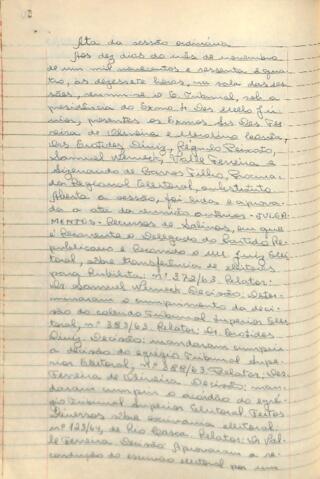 Ata da sessão ordinária
Aos dez dias do mês de novembro
de um mil novecentos e sessenta e qua-
tro, às dezessete horas, na sala das ses-
sões, reuniu-se o E. Tribunal, sob a
presidência do Exmo. Sr. Des. Mello Jún
nior, presentes os Exmos. Srs. Des. Fer
reira de Oliveira e Merolino
Drs. Erotides Diniz, Régulo Peixoto,
Samuel Werneck, Valle Ferreira e
de Barros Filho, Procura-
dor Regional Eleitoral, substituto.
Aberta a sessão, foi lida e aprova-
da a ata da reunião anterior. - JULGA-
MENTOS - Recurso de Salinas, em que
é Recorrente o Delegado do Partido Re-
publicano e Recorrido o MM. Juiz Elei-
toral, sobre transferência de eleitores
para Rubelita. nº 372/63. Relator:
Dr. Samuel Werneck. Decisão: Deter-
minaram o cumprimento da deci-
são do colendo Tribunal Superior Elei-
toral, nº 387/63. Relator: Dr. Erotides
Diniz. Decisão: mandaram cumprir
a decisão do egrégio Tribunal Supe-
rior Eleitoral, nº 388/63. Relator: Des.
Ferreira de Oliveira. Decisão: man-
daram cumprir o acórdão do egré-
gio Tribunal Superior Eleitoral. Feitos
Diversos sôbre escrivania eleitoral.
nº 123/64, de Rio Casca. Relator: Dr. Val-
le Ferreira. Decisão: Aprovaram a re-
condução do escrivão eleitoral por um